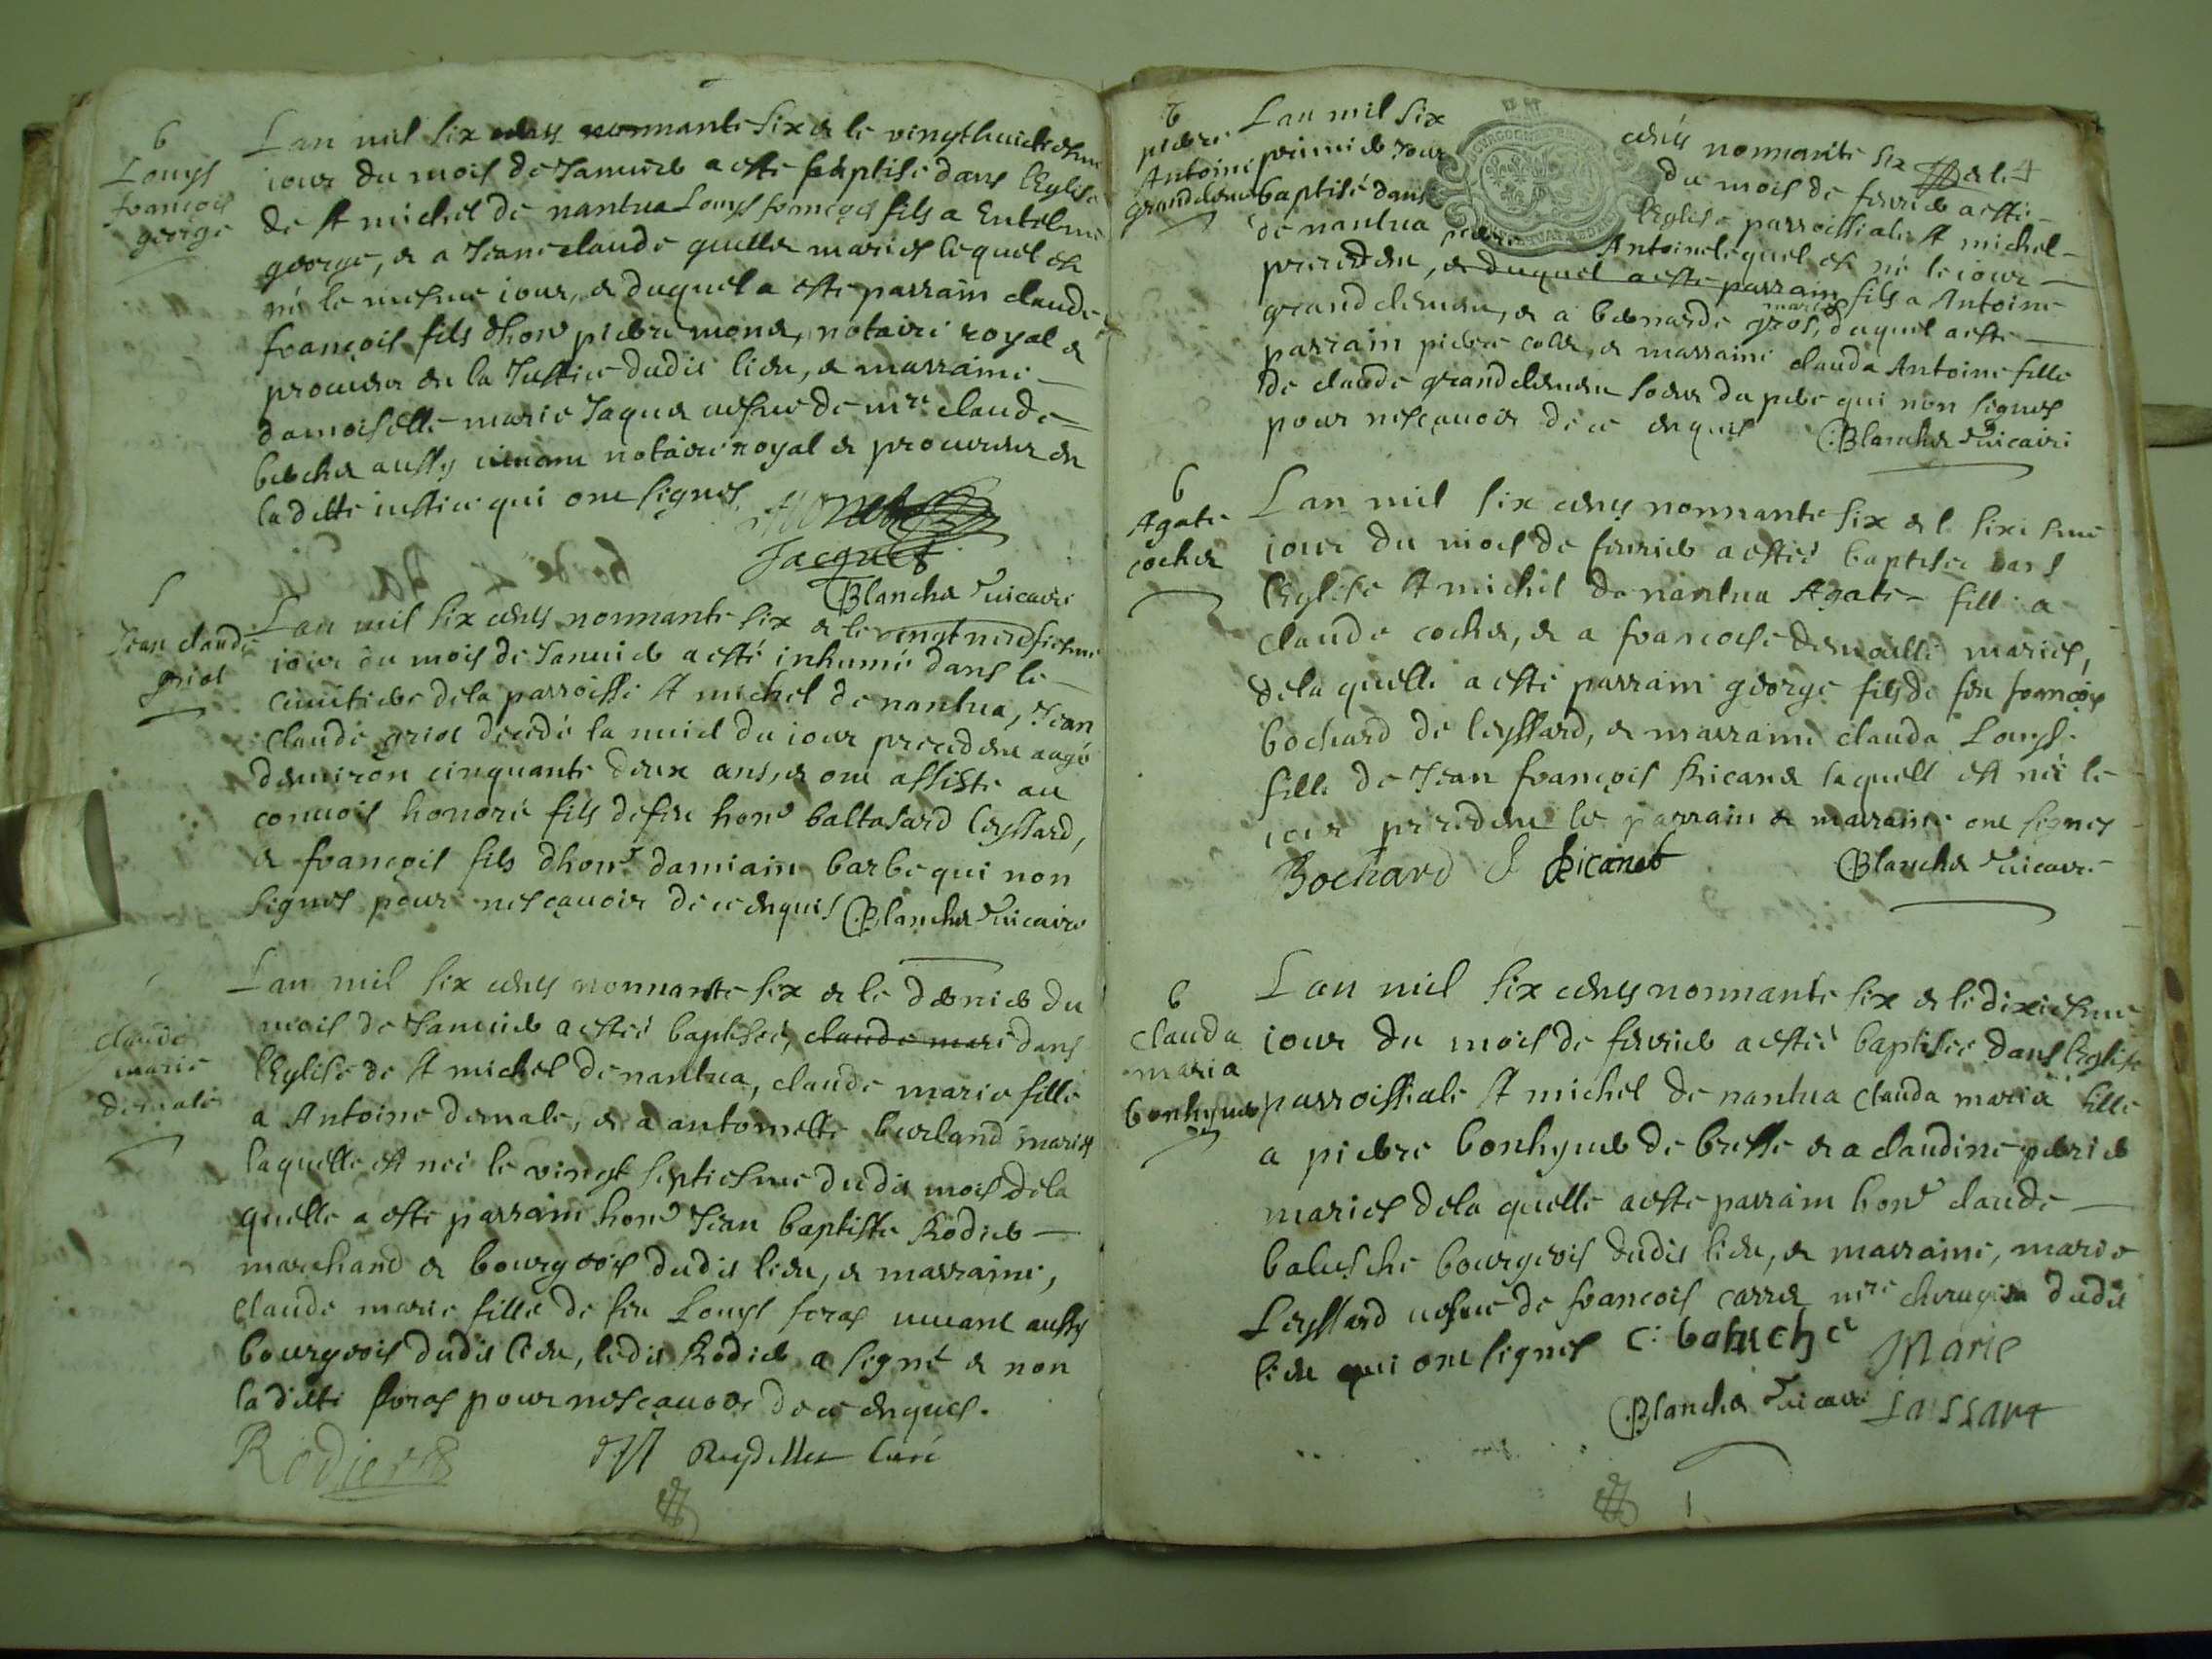 b
Louys
francois
george
Lan mil six cens nonnante six & le vingt huictiesme
iour du mois de Januier a esté baptisé dans leglise
de st michel de nantua Louys francois fils a Entelme
george, & a Jeane claude quillet mariés lequel est
né le mesme iour, & duquel a esté parrain claude
francois fils dhon^e pierre monet, notaire royal &
procureur en la Justice dudit lieu, & marraine
damoiselle marie Jaquet uesue de m^re claude
bechet aussy notaire royal & procureur en
la ditte iustice qui ont signés
Monet
Jacquet
Blanchet Vicaire
S
Jean claude
griot
Lan mil six cens nonnante six & le vingt neufiesme
iour du mois de Januier a esté inhumé dans le
cimitiere de la parroisse st michel de nantua, Jean
claude griot decedé la nuict du iour precedent aagé
denuiron cinquante deux ans, & ont assisté au
conuois honoré fils de feu hon^e baltasard leyssard,
& francois fils dhon^e damiain barbe qui non
signés pour ne scauoir de ce enquis Blanchet Vicaire
claude
marie
dernale
Lan mil six cens nonnante six & le dernier du
mois de Januier a estéé baptiséé, claude marie dans
leglise de st michel de nantua, claude marie fille
a Antoine dernale, & a antoinette burland mariés
laquelle est néé le vingt septiesme dudit mois de la
quelle a esté parrain hon^e Jean baptiste Rodier
marchand & bourgeois dudit lieu, & marraine,
claude marie fille de feu Louys foras uiuant aussy
bourgeois dudit lieu, ledit Rodier a signé & non
la ditte foras pour ne scauoir de ce enquis.
Rodier curé
b
pierre
Antoine
grandclement
Lan mil six cens nonnante six & le 4
premier iour du mois de feurier a esté
baptisé dans leglise parroissiale st michel
de nantua pierre Antoine lequel est né le iour
precedent, & duquel a esté parrain fils a Antoine
grandclement, & a bernarde gros, mariés duquel a esté
parrain pierre colet, & marraine clauda Antoine fille
de claude grandclement soeur du pere qui non signés
pour ne scauoir de ce enquis Blanchet Vicaire
b
Agate
cochet
Lan mil six cens nonnante six & le sixiesme
iour du mois de feurier a estéé baptisée dans
leglise st michel de nantua Agate fille a
claude cochet, & a francoise dernoille mariés,
de la quelle a esté parrain george fils de feu francois
bochard de leyssard, & marraine clauda Louyse
fille de Jean francois picanet laquelle est néé le
iour precedent les parrain & marraine ont signés
Bochard picanet Blanchet Vicaire
b
clauda
maria
bonhyuer
Lan mil six cens nonnante six & le dixiesme
iour du mois de feurier a estéé baptisée dans leglise
parroissiale st michel de nantua clauda maria fille
a pierre bonhyuer de bresse & a claudine perrier
mariés de la quelle a esté parrain hon^e claude
balusche bourgeois dudit lieu, & marraine, marie
Leyssard uesue de francois carret m^re chirugien dudit
lieu qui ont signés c: baluche Marie
Blanchet Vicaire Laissart